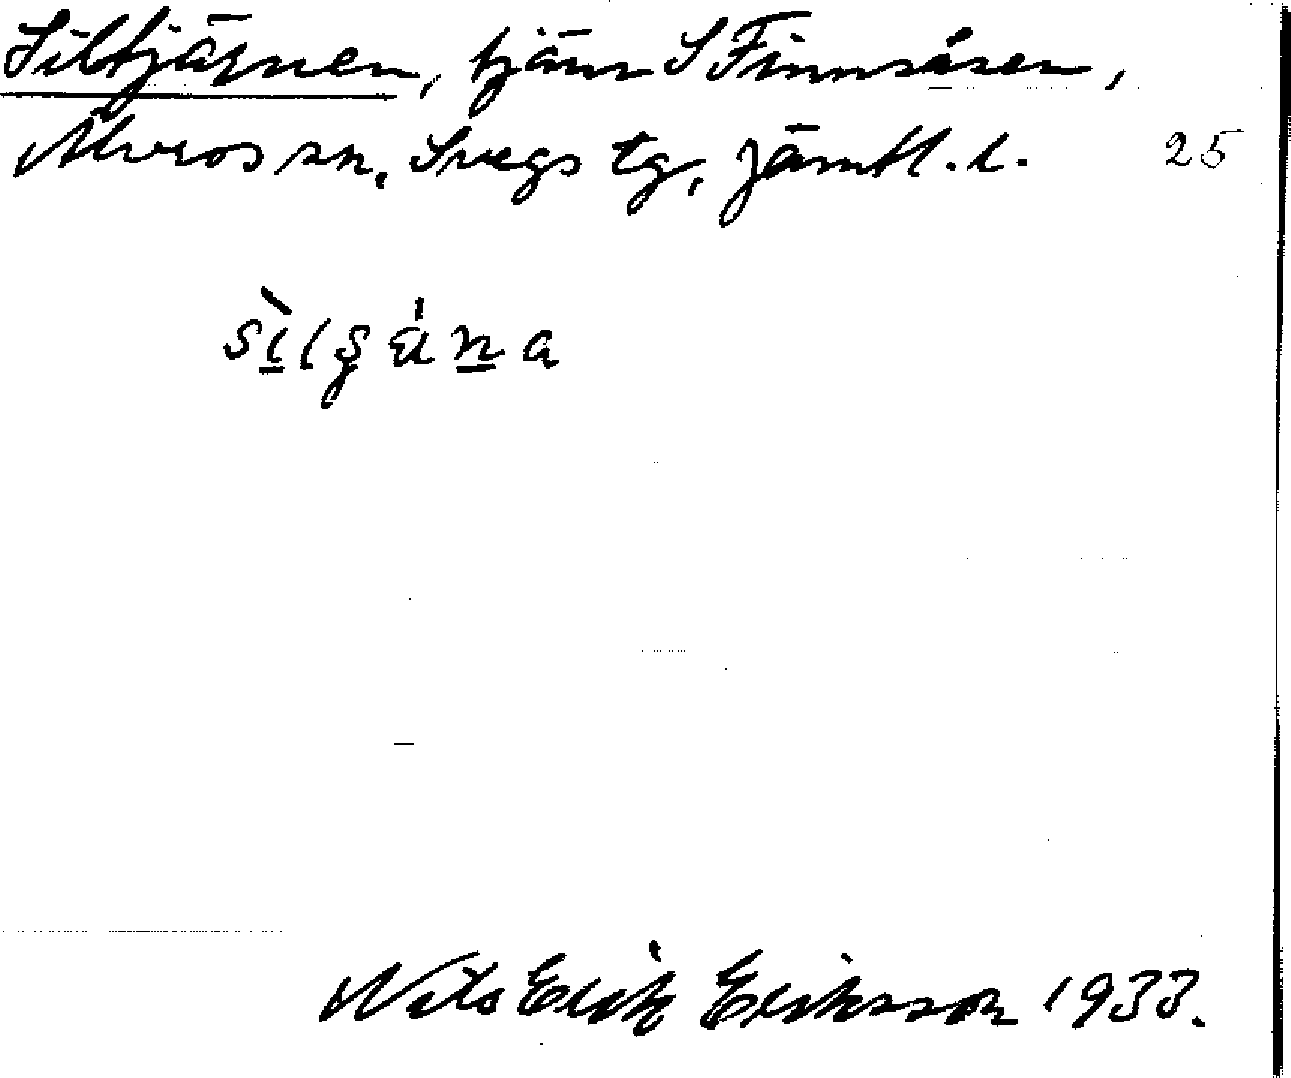 Siltjäṛnen, tjärn S Finnsåsen,
Älvros sn, Svegs tg, Jämtl. l. 25
Nils Erik Eriksson 1933.